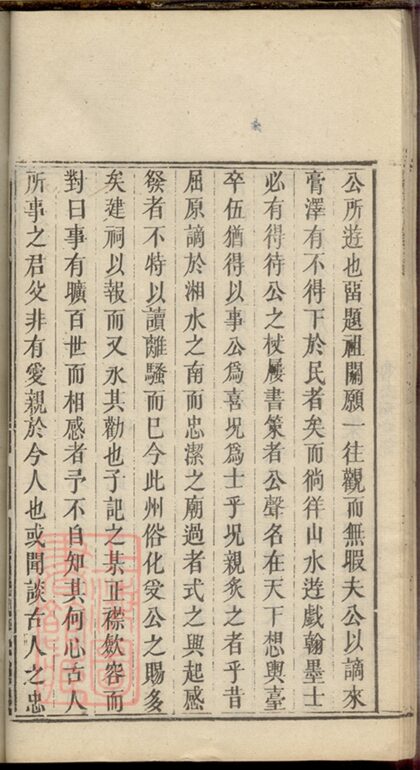 公所遊也留題祖關願一往觀而無暇夫公以謫來
膏澤有不得下於民者矣而徜徉山水遊戲翰墨士
必有得待公之杖屨書策者公聲名在天下想輿臺
卒伍猶得以事公爲喜况爲士乎况親炙之者乎昔
屈原謫於湘水之南而忠潔之廟過者式之興起感
發者不特以讀離騷而已今此州俗化受公之賜多
矣建祠以報而又求其勸也子記之某正襟斂容而
對曰事有曠百世而相感者予不自知其何心古人
所事之君父非有愛親於今人也或聞談古人之忠